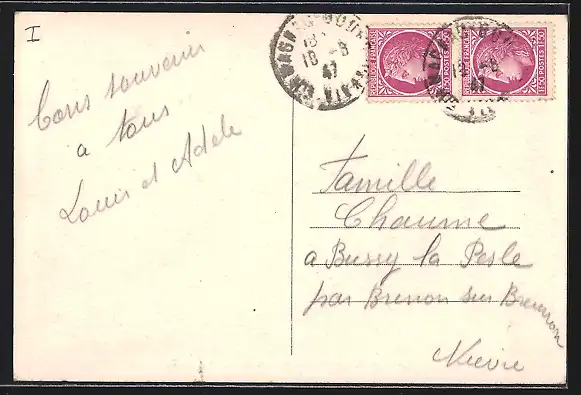 I
Bons souvenirs
a tous
Louis et Adele
18
18 -8
47
REPUBLIQUE FRANCAISE
1F50 POSTES 1F50
REPUBLIQUE FRANCAISE
1F50 POSTES 1F50
18 -8
47
Famille
Chaume
a Bussy la Pesle
par Brinon sur Beuvron
Nievre